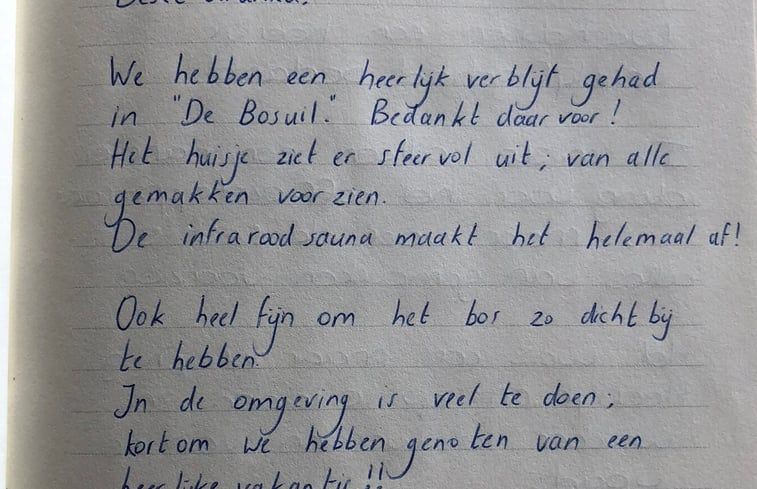 We hebben een heerlijk verblijf gehad
in "De Bosuil." Bedankt daarvoor!
Het huisje ziet er sfeervol uit; van alle
gemakken voorzien.
De infrarood sauna maakt het helemaal af!
Ook heel fijn om het bos zo dichtbij
te hebben.
In de omgeving is veel te doen;
kortom we hebben genoten van een
heerlijke vakantie!!